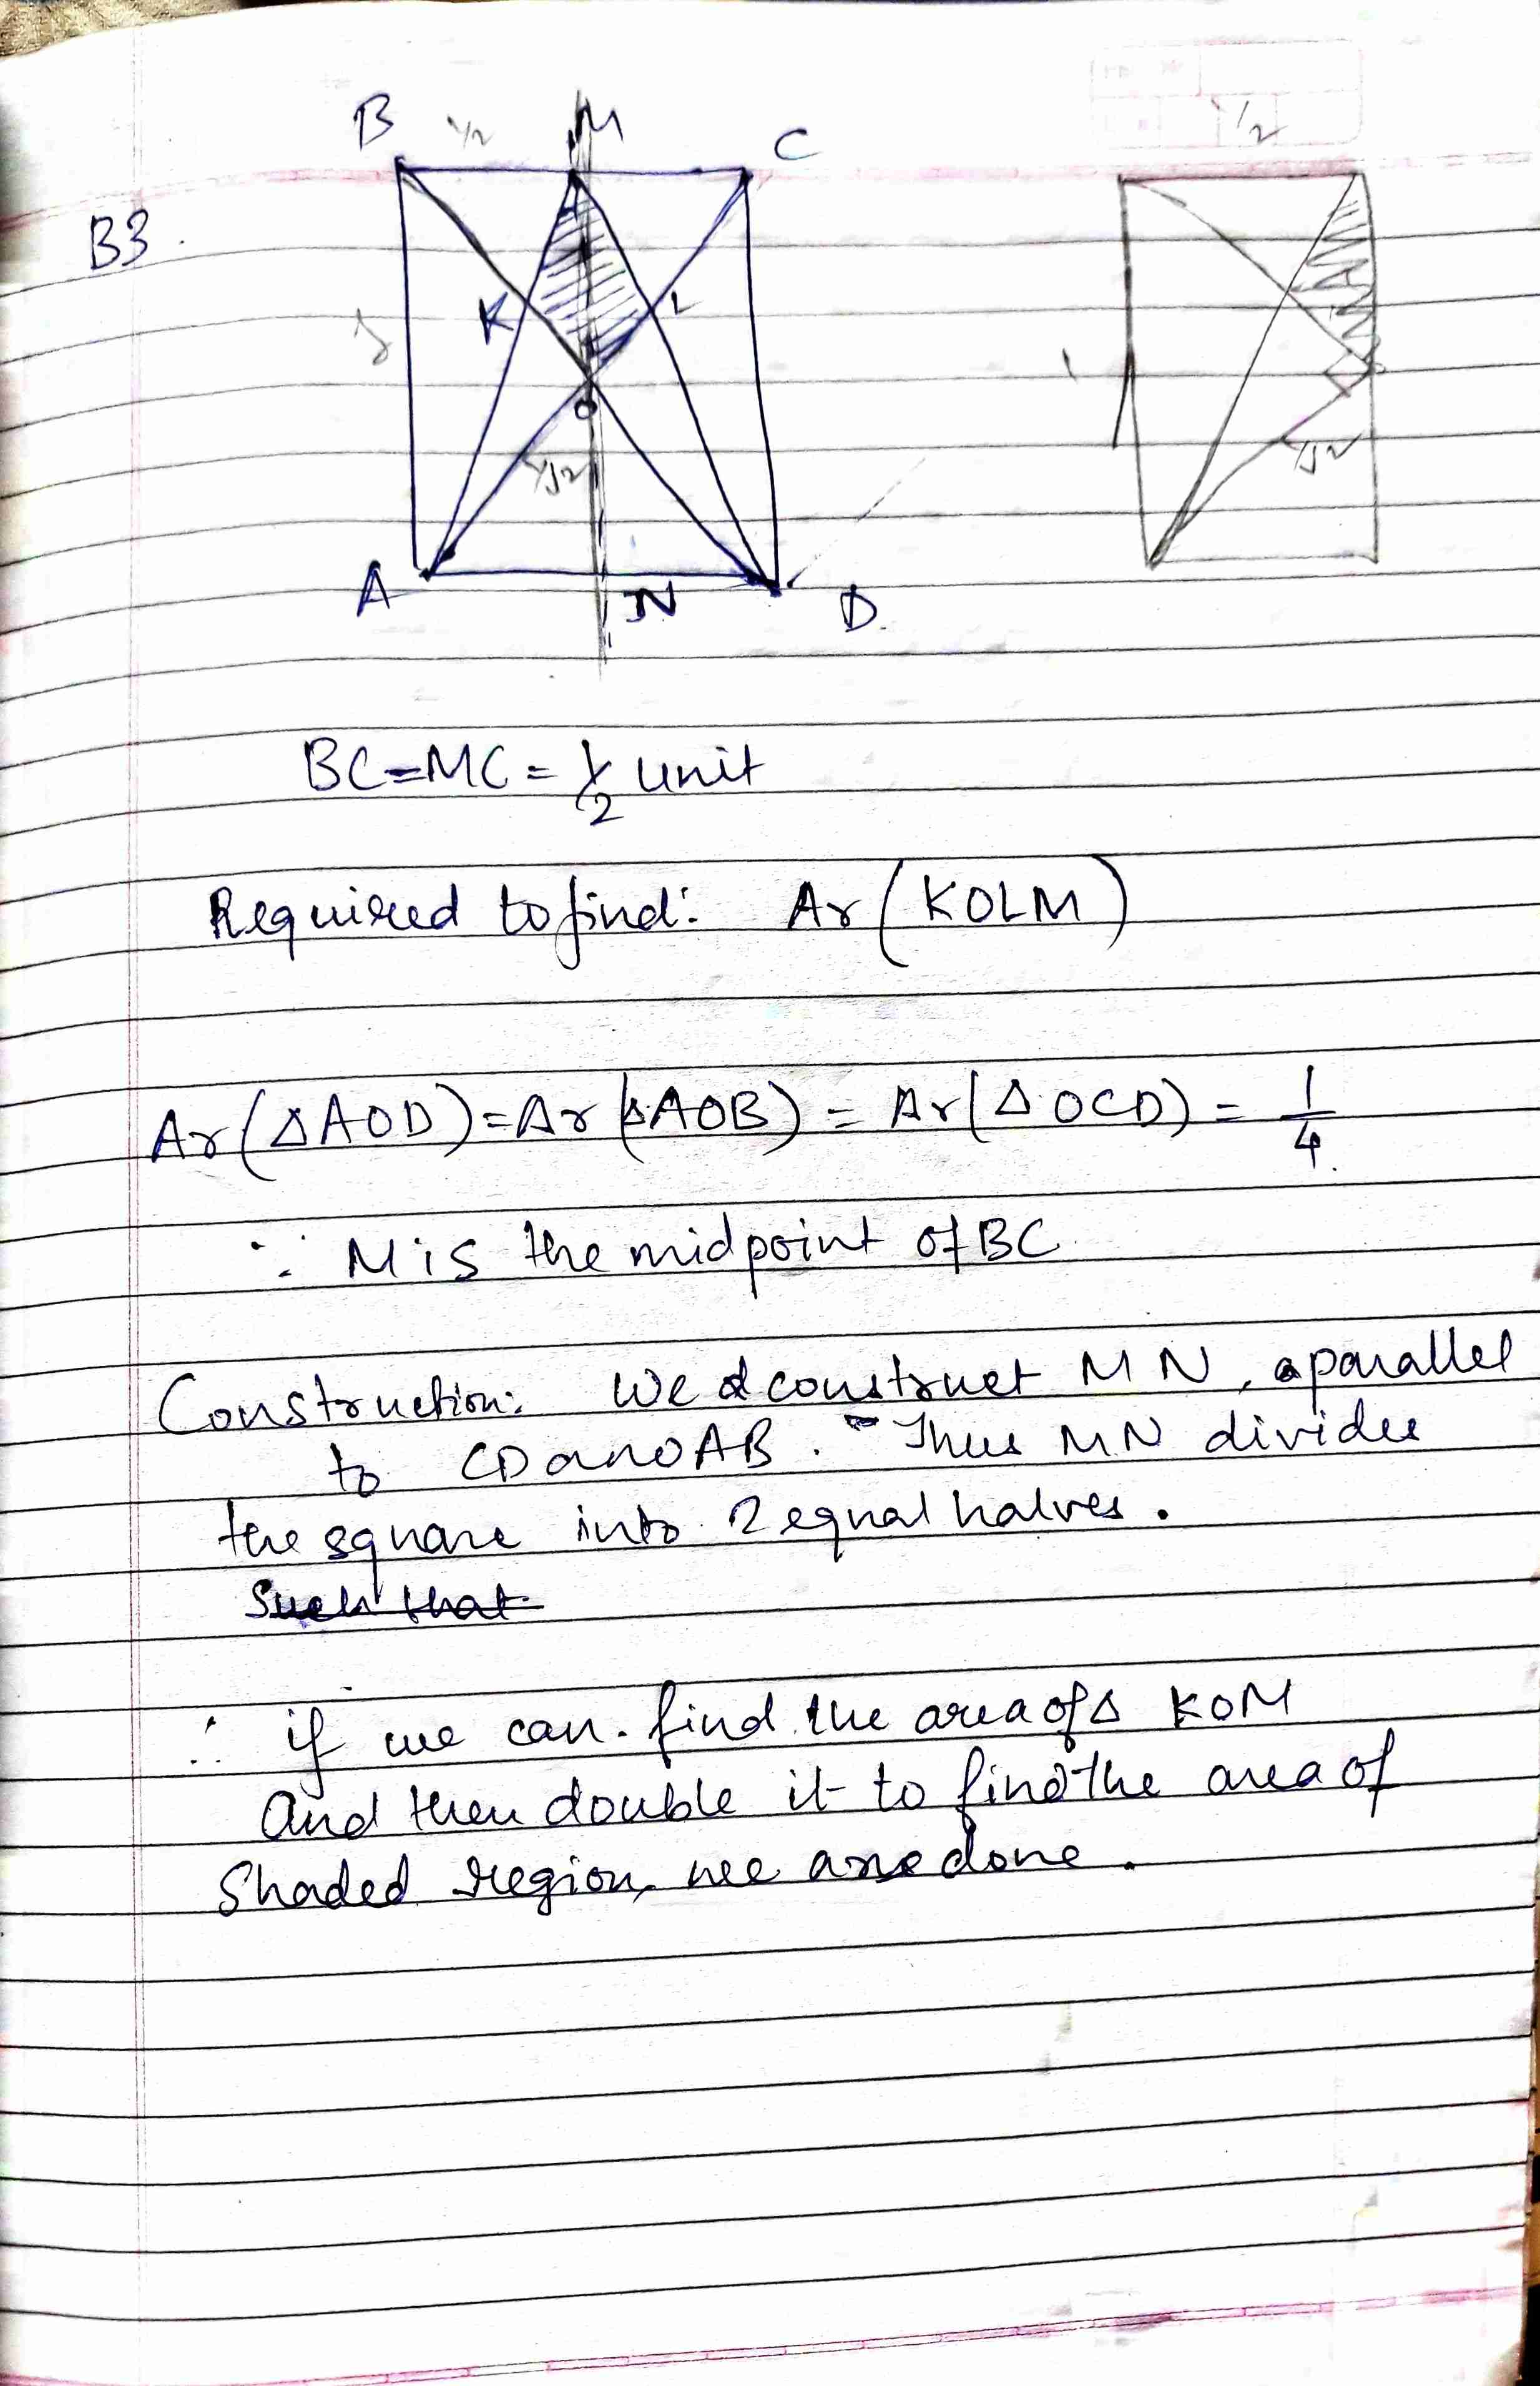 B 1/2 M C
1/2
B3.
K L
1
1
O
1/√2
1/√2
A N D.
BC=MC = 1/2 unit
Required to find: Ar(KOLM)
Ar(ΔAOD)=Ar(ΔAOB) = Ar(ΔOCD) = 1/4.
∵ M is the midpoint of BC
Construction: We construct MN, parallel
to CD and AB. Thus MN divides
the square into 2 equal halves.
Such that
∴ if we can find the area of Δ KOM
And then double it to find the area of
Shaded region, we are done.